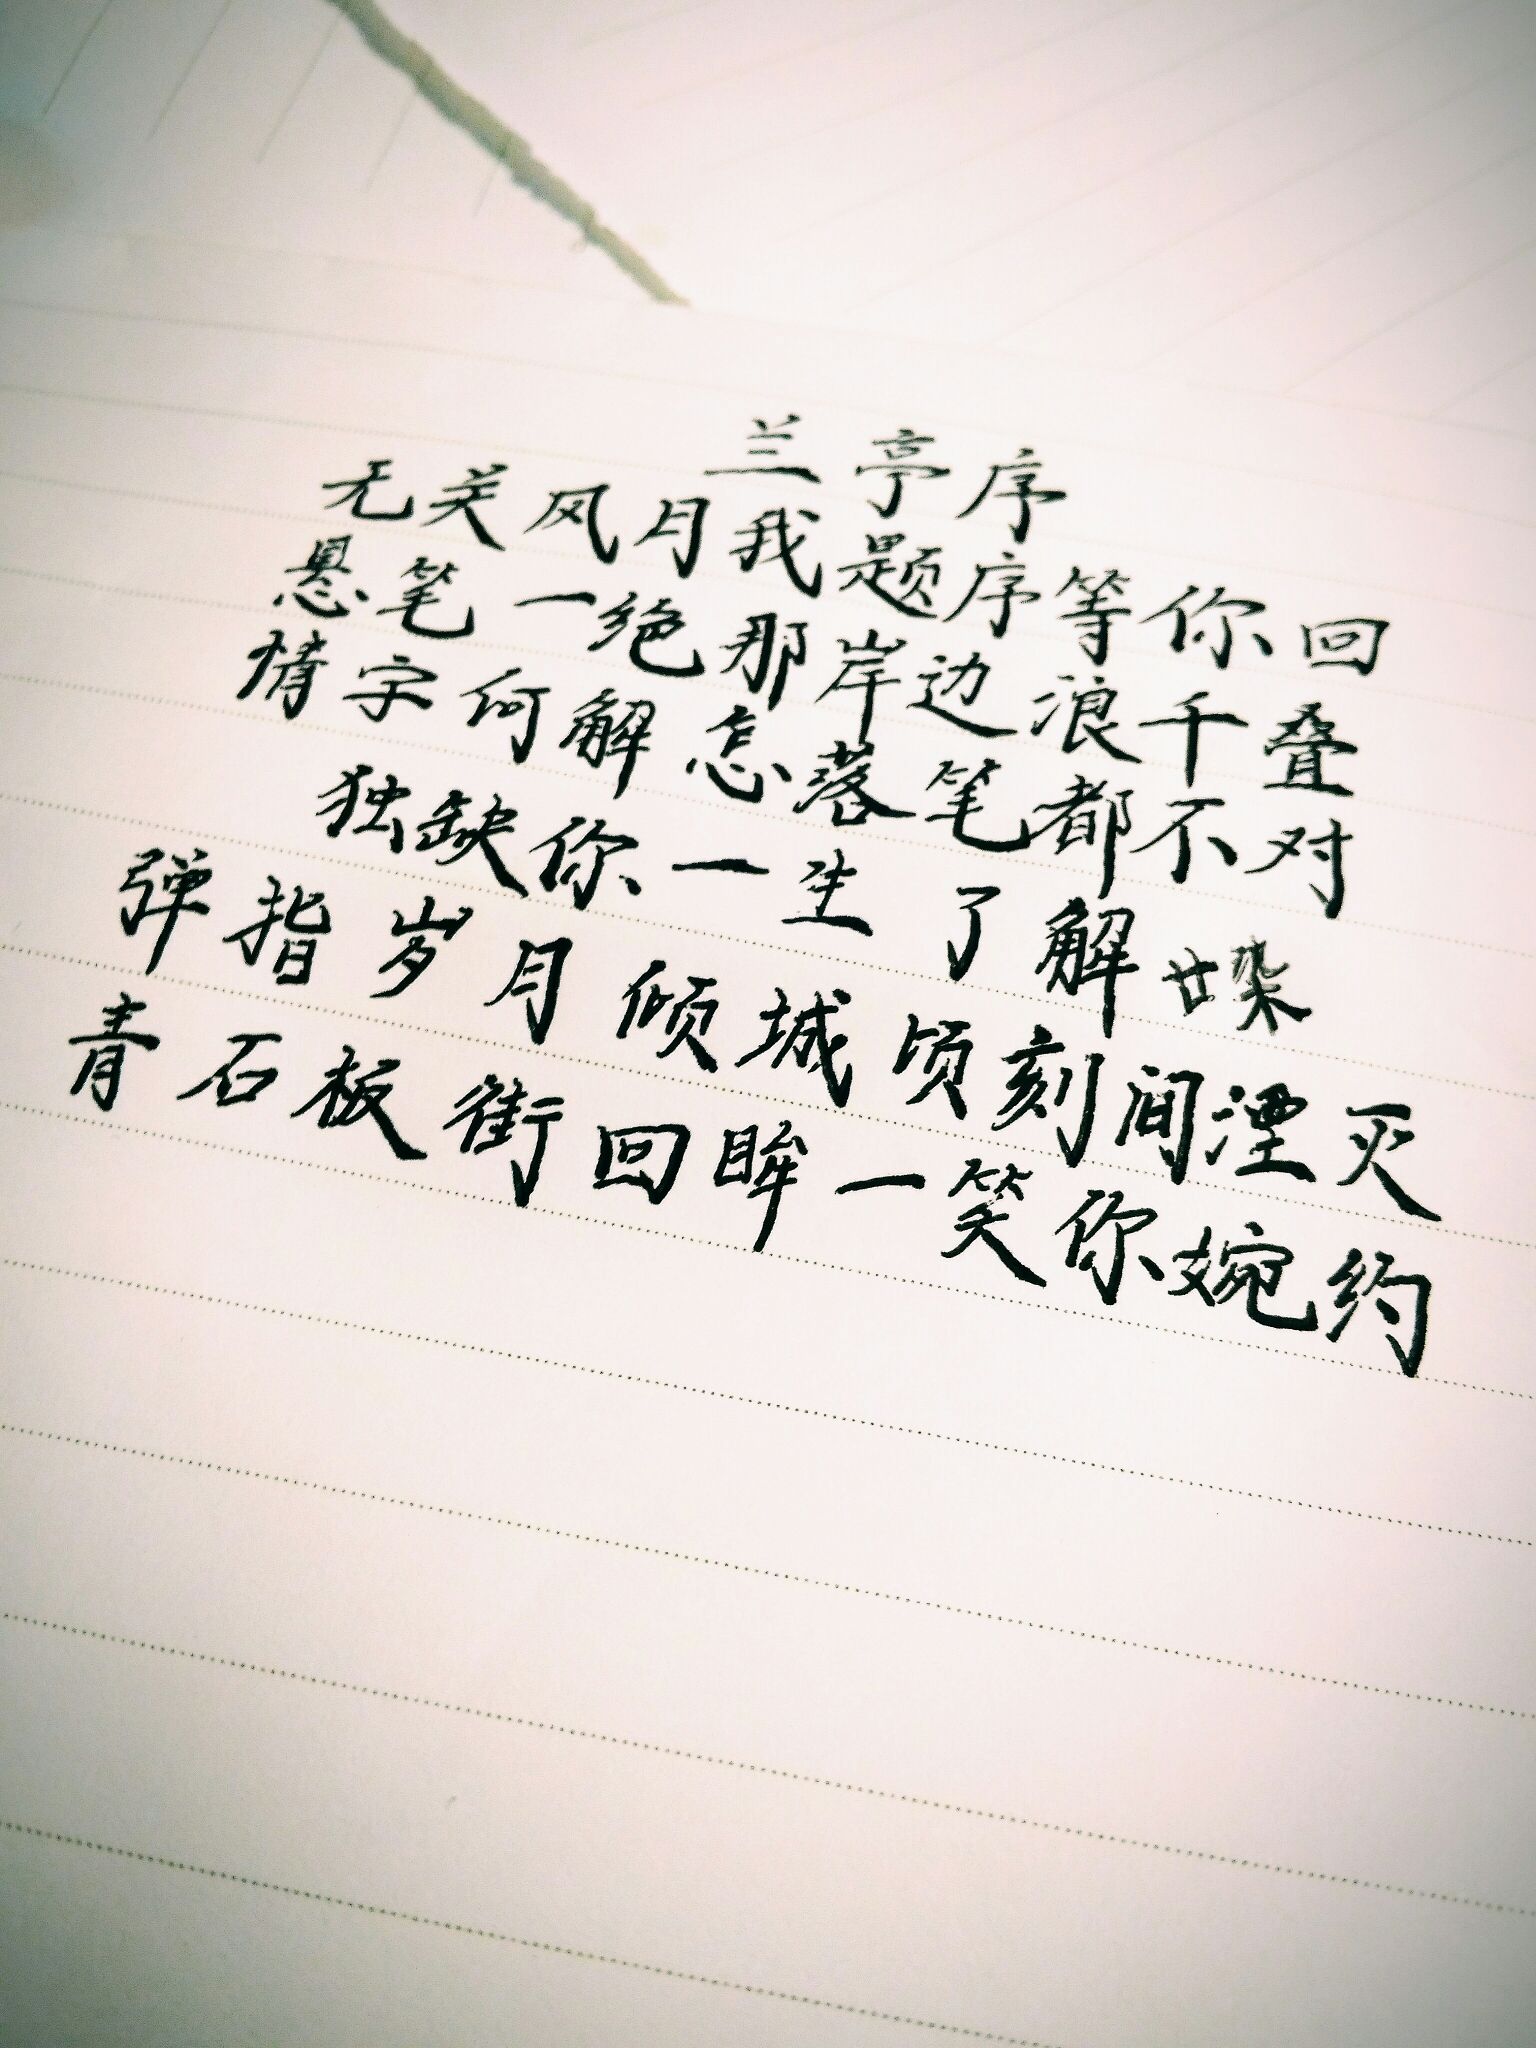 兰亭序
无关风月我题序等你回
悬笔一绝那岸边浪千叠
情字何解怎落笔都不对
独缺你一生了解 廿染
弹指岁月倾城顷刻间湮灭
青石板街回眸一笑你婉约